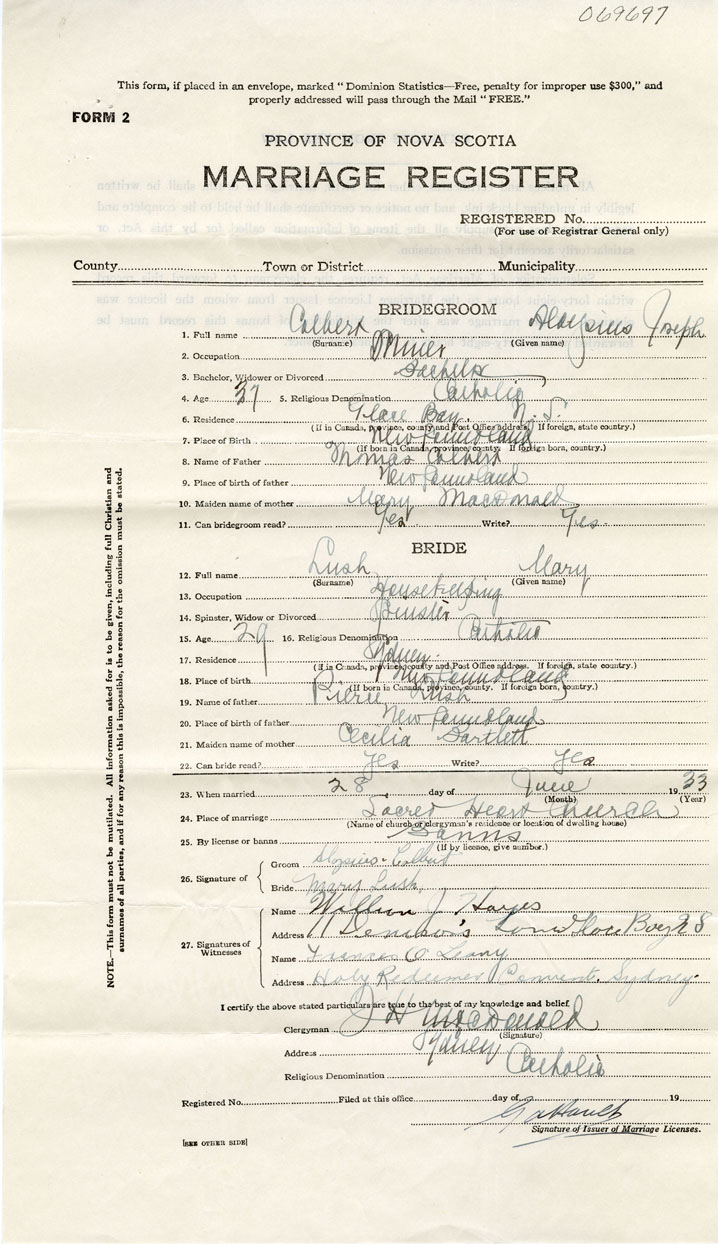 069697
This form, if placed in an envelope, marked "Dominion Statistics—Free, penalty for improper use $300," and
properly addressed will pass through the Mail "FREE."
FORM 2
PROVINCE OF NOVA SCOTIA
MARRIAGE REGISTER
REGISTERED No.
(For use of Registrar General only)
County Town or District Municipality
BRIDEGROOM
1. Full name Colbert Aloysius Joseph
(Surname) (Given name)
2. Occupation Miner
3. Bachelor, Widower or Divorced Bachelor
4. Age 37 5. Religious Denomination Catholic
6. Residence Glace Bay. N.S.
(If in Canada, province, county and Post Office address. If foreign, state country.)
7. Place of Birth Newfoundland
(If born in Canada, province, county. If foreign born, country.)
8. Name of Father Thomas Colbert
9. Place of birth of father Newfoundland
10. Maiden name of mother Mary MacDonald
11. Can bridegroom read? Yes Write? Yes
BRIDE
12. Full name Lush Mary
(Surname) (Given name)
13. Occupation Housekeeping
14. Spinster, Widow or Divorced Spinster
15. Age 29 16. Religious Denomination Catholic
17. Residence Sydney.
(If in Canada, province, county and Post Office address. If foreign, state country.)
18. Place of birth Newfoundland
(If born in Canada, province, county. If foreign born, country.)
19. Name of father Pierre Lush
20. Place of birth of father Newfoundland
21. Maiden name of mother Cecilia Bartlett
22. Can bride read? Yes Write? Yes
23. When married 28 day of June 1933
(Month) (Year)
24. Place of marriage Sacred Heart Church
(Name of church or clergyman's residence or location of dwelling house)
25. By license or banns Banns
(If by licence, give number.)
26. Signature of
Groom Aloysius Colbert
Bride Mary Lush
27. Signatures of Witnesses
Name William J Hayes
Address 11 Glace Bay
Name Frances O'Leary
Address Holy Redeemer Convent. Sydney.
I certify the above stated particulars are true to the best of my knowledge and belief
Clergyman J H MacDonald
(Signature)
Address Sydney
Religious Denomination Catholic
Registered No. Filed at this office day of 19
Signature of Issuer of Marriage Licenses.
[SEE OTHER SIDE]
NOTE.—This form must not be mutilated. All information asked for is to be given, including full Christian and
surnames of all parties, and if for any reason this is impossible, the reason for the omission must be stated.